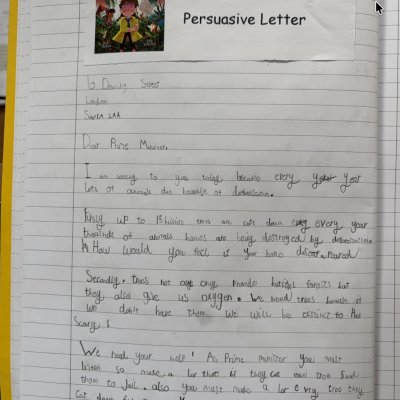 Persuasive Letter
10 Downing Street
London
SW1A 2AA
Dear Prime Minister
I am writing to you today because every year
lots of animals die because of deforestation.
Firstly up to 15 billion trees are cut down every year
thousands of animals homes are being destroyed by deforestation.
How would you feel if your home
Secondly, trees not only provide forests but
they also give us oxygen. We need trees because if
we don't have them we will be extinct to
Scary!
We need your help! As Prime minister you must
listen so make a law that if they cut one tree send
them to Jail. also you must make a law every tree they
cut down